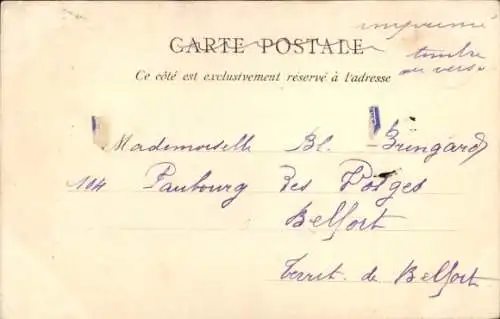 imprimé
timbre
au verso
CARTE POSTALE
Ce côté est exclusivement réservé à l'adresse
Mademoiselle Bl. Bringard
104 Faubourg des Vosges
Belfort
Territ. de Belfort